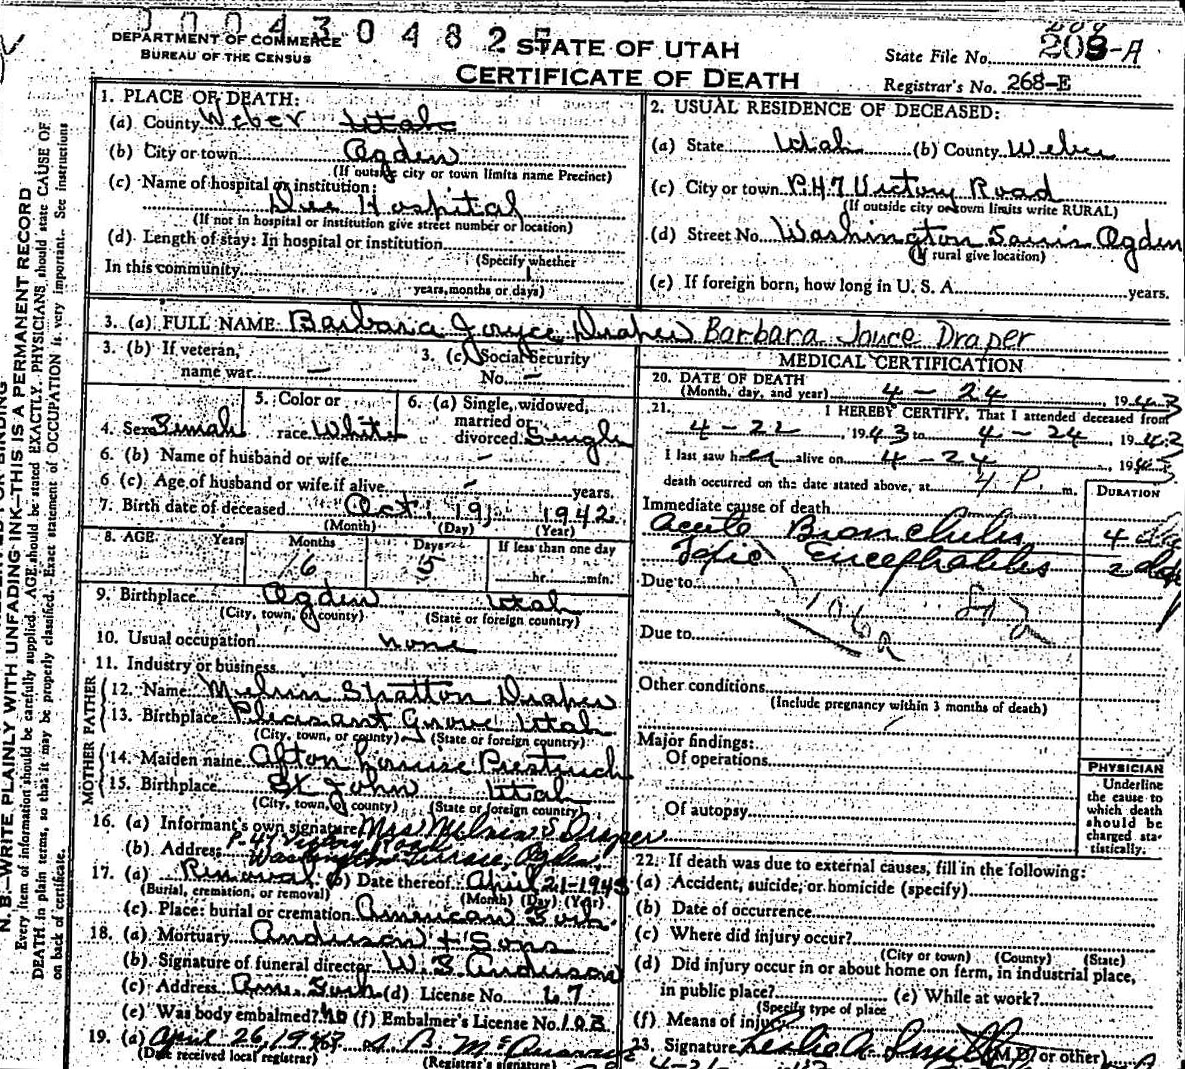 0 0 0 4 3 0 4 8 2
DEPARTMENT OF COMMERCE
BUREAU OF THE CENSUS
STATE OF UTAH
CERTIFICATE OF DEATH
State File No. 208-A
Registrar's No. 268-E
N. B.—WRITE PLAINLY WITH UNFADING INK—THIS IS A PERMANENT RECORD
Every item of information should be carefully supplied. AGE should be stated EXACTLY. PHYSICIANS should state CAUSE OF
DEATH in plain terms, so that it may be properly classified. Exact statement of OCCUPATION is very important. See instructions
on back of certificate.
1. PLACE OF DEATH:
(a) County Weber Utah
(b) City or town Ogden
(If outside city or town limits name Precinct)
(c) Name of hospital or institution:
Dee Hospital
(If not in hospital or institution give street number or location)
(d) Length of stay: In hospital or institution
(Specify whether
In this community
years, months or days)
2. USUAL RESIDENCE OF DECEASED:
(a) State Utah (b) County Weber
(c) City or town P.47 Victory Road
(If outside city or town limits write RURAL)
(d) Street No. Washington Ogden
(If rural give location)
(e) If foreign born, how long in U. S. A. years.
3. (a) FULL NAME Barbara Joyce Draper Barbara Joyce Draper
3. (b) If veteran,
name war —
3. (c) Social Security
No. —
4. Sex Female
5. Color or
race White
6. (a) Single, widowed,
married or
divorced Single
6. (b) Name of husband or wife —
6 (c) Age of husband or wife if alive — years.
7. Birth date of deceased Oct 19 1942
(Month) (Day) (Year)
8. AGE Years Months Days If less than one day
6 5 hr. min.
9. Birthplace Ogden Utah
(City, town, or county) (State or foreign country)
10. Usual occupation none
11. Industry or business
FATHER
12. Name Melvin Stratton Draper
13. Birthplace Pleasant Grove Utah
(City, town, or county) (State or foreign country)
MOTHER
14. Maiden name Afton Louise
15. Birthplace St John Utah
(City, town, or county) (State or foreign country)
16. (a) Informant's own signature Mrs Melvin S Draper
(b) Address P-47 Victory Road
Washington Terrace, Ogden
17. (a) Removal (b) Date thereof April 1943
(Burial, cremation, or removal) (Month) (Day) (Year)
(c) Place: burial or cremation American Fork
18. (a) Mortuary Anderson & Sons
(b) Signature of funeral director W. S. Anderson
(c) Address Am. Fork (d) License No. 67
(e) Was body embalmed? no (f) Embalmer's License No. 103
19. (a) April 26, 1943
(Date received local registrar) (Registrar's signature)
MEDICAL CERTIFICATION
20. DATE OF DEATH
(Month, day, and year) 4 - 24, 1943
21. I HEREBY CERTIFY, That I attended deceased from
4 - 22 1943 to 4 - 24, 1943
I last saw her alive on 4 - 24, 1943
death occurred on the date stated above, at 4 P. m.
DURATION
Immediate cause of death
Acute 4
Toxic Encephalitis 2 days
Due to
Due to
Other conditions
(Include pregnancy within 3 months of death)
Major findings:
Of operations
Of autopsy
PHYSICIAN
Underline
the cause to
which death
should be
charged sta-
tistically.
22. If death was due to external causes, fill in the following:
(a) Accident, suicide, or homicide (specify)
(b) Date of occurrence
(c) Where did injury occur?
(City or town) (County) (State)
(d) Did injury occur in or about home on farm, in industrial place,
in public place? (e) While at work?
(Specify type of place
(f) Means of injury
23. Signature Leslie A. Smith (M.D. or other)